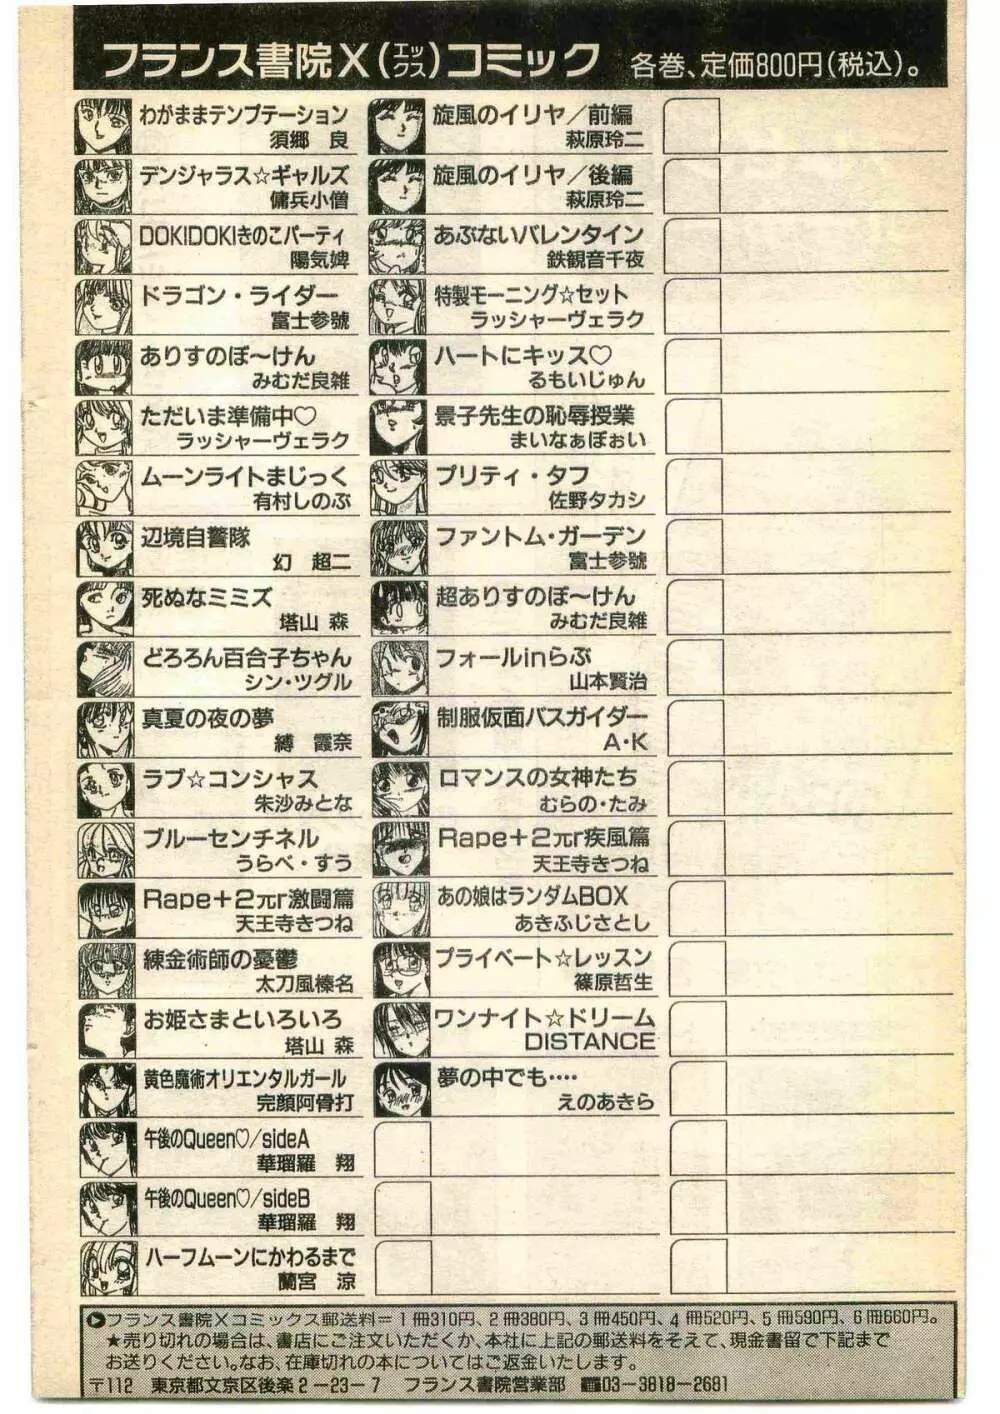 フランス書院X(エックス)コミック 各巻、定価800円(税込)。
わがままテンプテーション
須郷 良
デンジャラス☆ギャルズ
傭兵小僧
DOKIDOKIきのこパーティ
陽気婢
ドラゴン・ライダー
富士参號
ありすのぼ〜けん
みむだ良雑
ただいま準備中♡
ラッシャーヴェラク
ムーンライトまじっく
有村しのぶ
辺境自警隊
幻 超二
死ぬなミミズ
塔山 森
どろろん百合子ちゃん
シン・ツグル
真夏の夜の夢
縛 霞奈
ラブ☆コンシャス
朱沙みとな
ブルーセンチネル
うらべ・すう
Rape+2πr激闘篇
天王寺きつね
練金術師の憂鬱
太刀風榛名
お姫さまといろいろ
塔山 森
黄色魔術オリエンタルガール
完顔阿骨打
午後のQueen♡/sideA
華瑠羅 翔
午後のQueen♡/sideB
華瑠羅 翔
ハーフムーンにかわるまで
蘭宮 涼
旋風のイリヤ/前編
萩原玲二
旋風のイリヤ/後編
萩原玲二
あぶないバレンタイン
鉄観音千夜
特製モーニング☆セット
ラッシャーヴェラク
ハートにキッス♡
るもいじゅん
景子先生の恥辱授業
まいなぁぼぉい
プリティ・タフ
佐野タカシ
ファントム・ガーデン
富士参號
超ありすのぼ〜けん
みむだ良雑
フォールinらぶ
山本賢治
制服仮面バスガイダー
A・K
ロマンスの女神たち
むらの・たみ
Rape+2πr疾風篇
天王寺きつね
あの娘はランダムBOX
あきふじさとし
プライベート☆レッスン
篠原哲生
ワンナイト☆ドリーム
DISTANCE
夢の中でも‥‥
えのあきら
フランス書院Xコミックス郵送料=1冊310円、2冊380円、3冊450円、4冊520円、5冊590円、6冊660円。
★売り切れの場合は、書店にご注文いただくか、本社に上記の郵送料をそえて、現金書留で下記まで
お送りください。なお、在庫切れの本についてはご返金いたします。
〒112 東京都文京区後楽2-23-7 フランス書院営業部 ☎03-3818-2681